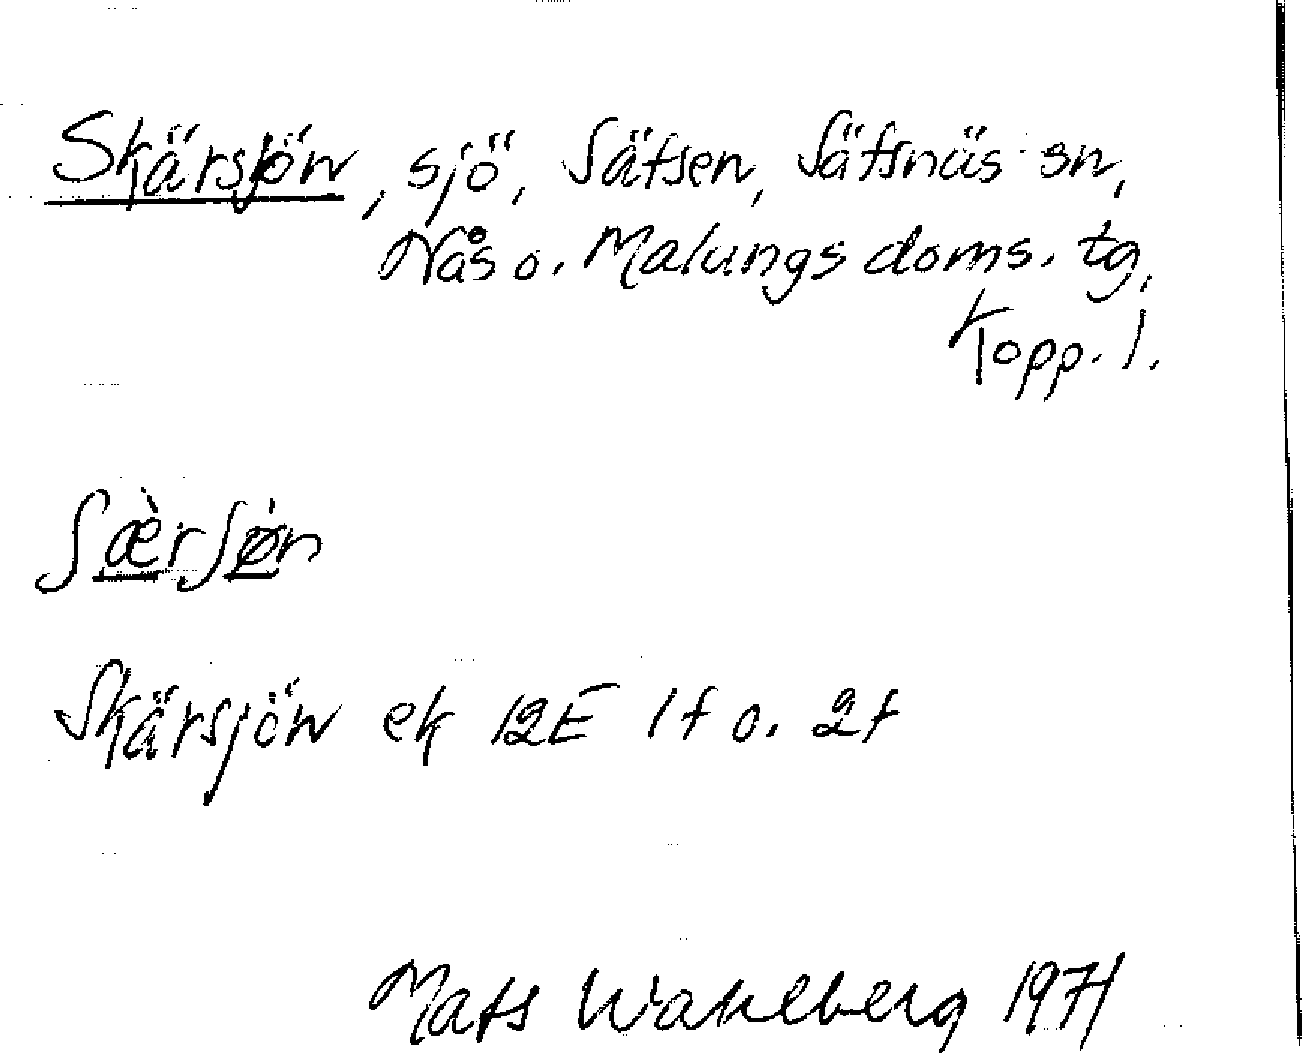 Skärsjön, sjö, Sätsen, Sätsnäs sn,
Nås o. Malungs doms. tg,
Kopp. l.
ʃæ̀rʃø̀n
Skärsjön ek 12E 1f o. 2f
Mats Wahlberg 1971